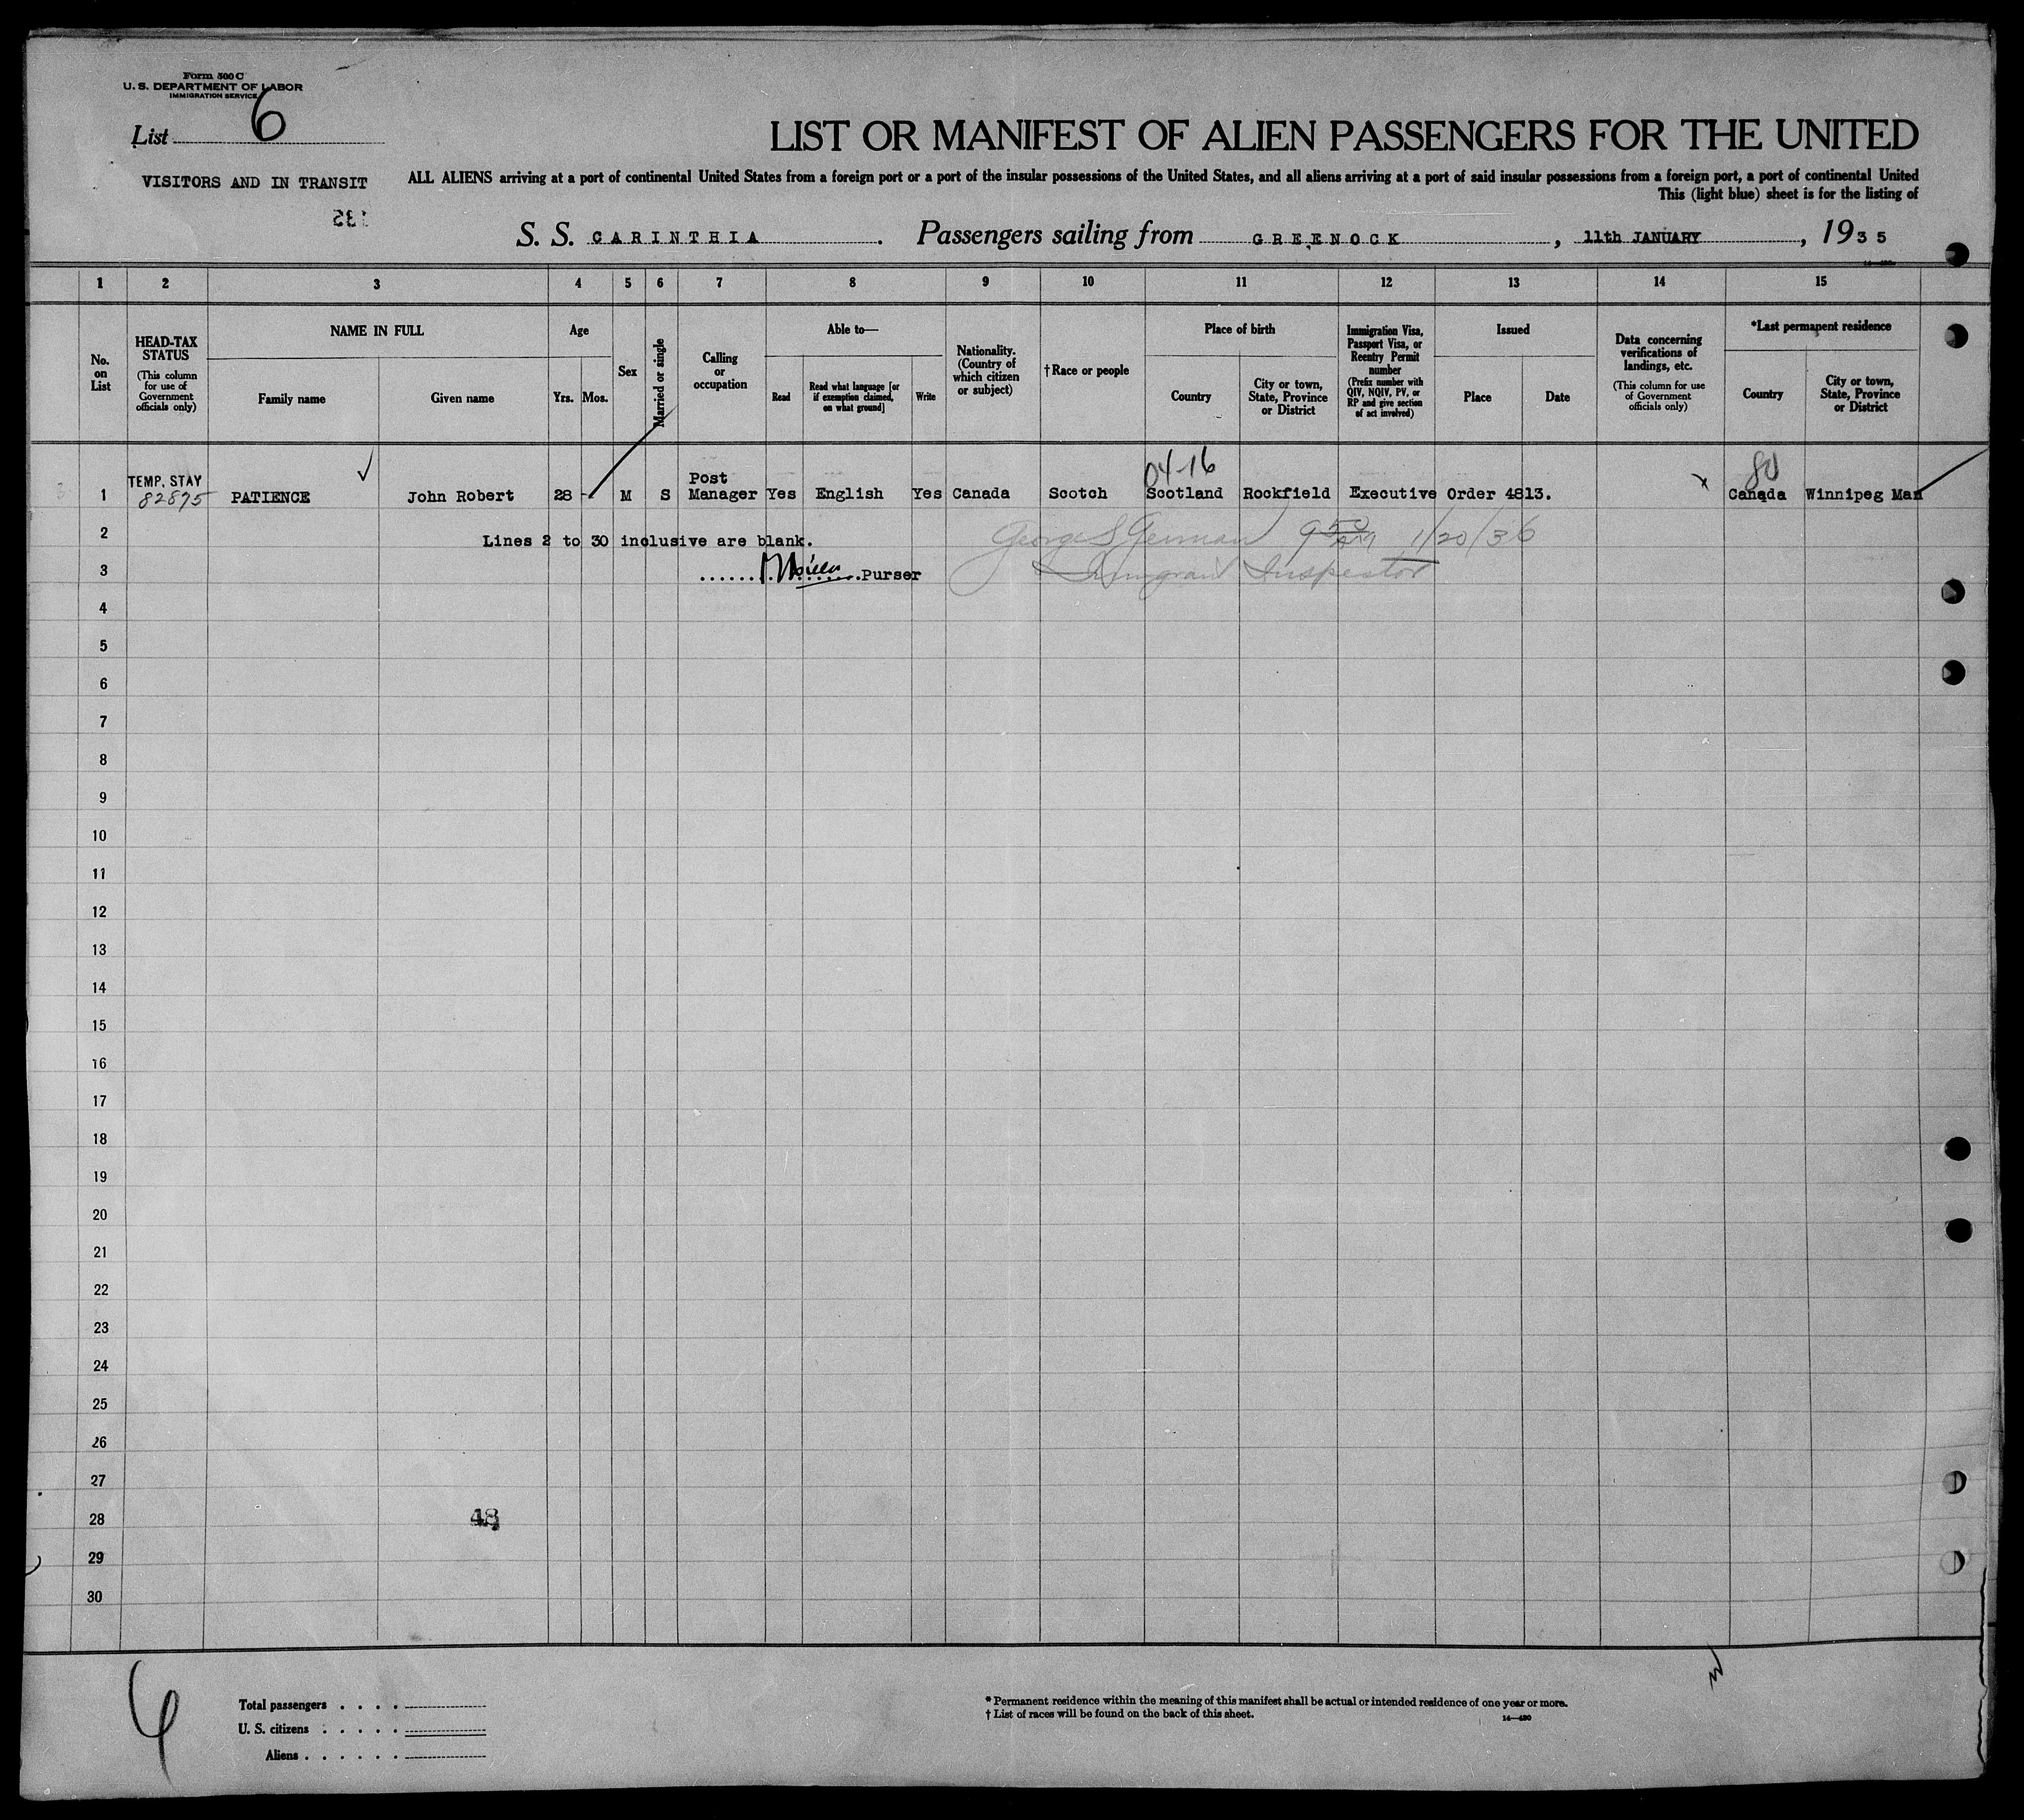 Form 500 C
U. S. DEPARTMENT OF LABOR
IMMIGRATION SERVICE
List 6
LIST OR MANIFEST OF ALIEN PASSENGERS FOR THE UNITED
VISITORS AND IN TRANSIT
ALL ALIENS arriving at a port of continental United States from a foreign port or a port of the insular possessions of the United States, and all aliens arriving at a port of said insular possessions from a foreign port, a port of continental United
This (light blue) sheet is for the listing of
135
S. S. CARINTHIA. Passengers sailing from GREENOCK, 11th JANUARY, 1935
1 2 3 4 5 6 7 8 9 10 11 12 13 14 15
No. on List
HEAD-TAX STATUS
(This column for use of Government officials only)
NAME IN FULL
Family name
Given name
Age
Yrs. Mos.
Sex
Married or single
Calling or occupation
Able to—
Read
Read what language [or if exemption claimed, on what ground]
Write
Nationality. (Country of which citizen or subject)
†Race or people
Place of birth
Country
City or town, State, Province or District
Immigration Visa, Passport Visa, or Reentry Permit number
(Prefix number with QIV, NQIV, PV, or RP and give section of act involved)
Issued
Place
Date
Data concerning verifications of landings, etc.
(This column for use of Government officials only)
*Last permanent residence
Country
City or town, State, Province or District
04-16 80
TEMP. STAY Post
1 82875 PATIENCE John Robert 28 - M S Manager Yes English Yes Canada Scotch Scotland Rockfield Executive Order 4813. Canada Winnipeg Man
2 Lines 2 to 30 inclusive are blank. George S German 9 50 AM 1/20/36
3 Purser Immigrant Inspector
4
5
6
7
8
9
10
11
12
13
14
15
16
17
18
19
20
21
22
23
24
25
26
27
28 48
29
30
Total passengers . . . .
U. S. citizens . . . . .
Aliens . . . . . .
* Permanent residence within the meaning of this manifest shall be actual or intended residence of one year or more.
† List of races will be found on the back of this sheet.
14—430